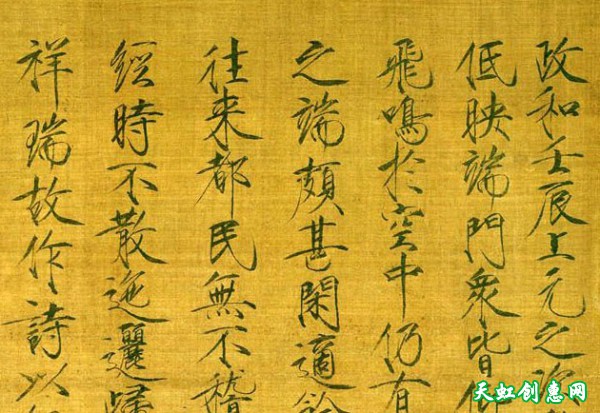 政和壬辰上元之次
低映端門衆皆仰
飛鳴於空中仍有
之端頗甚閑適餘
往來都民無不稽
經時不散迤邐歸
祥瑞故作詩以
天虹创惠网